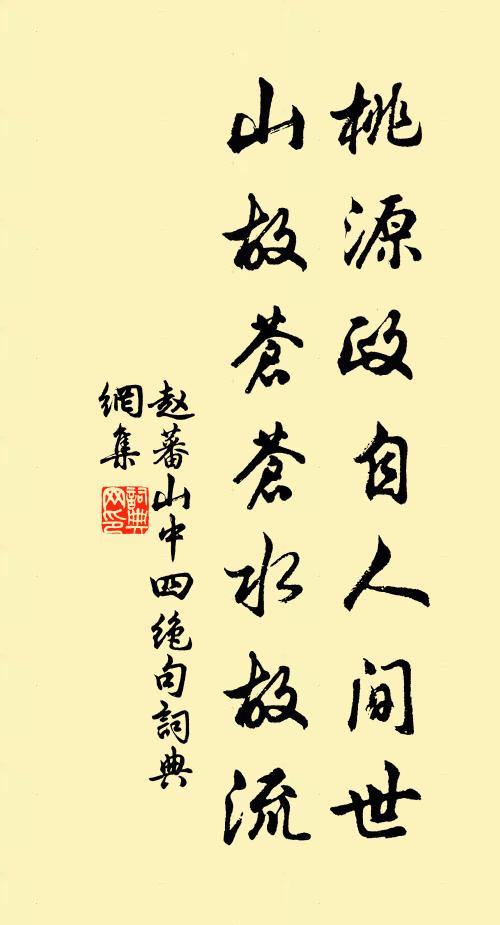 桃源政自人间世
山故蒼蒼水故流
赵蕃山中四绝句詞典
網集
詞典网印